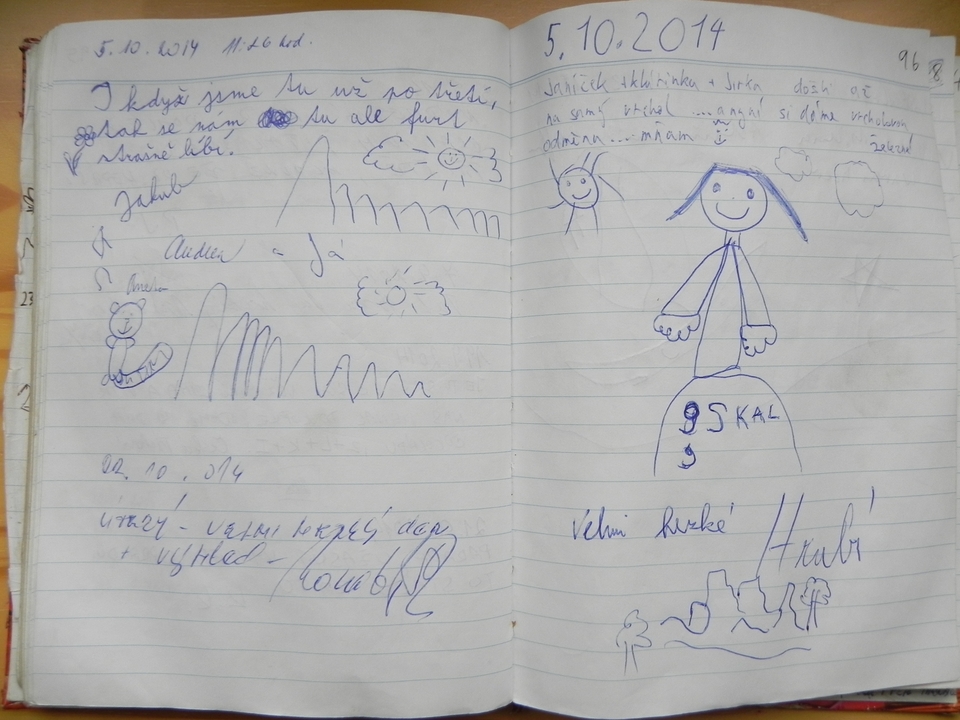 5.10.2014 11:26 hod.
I když jsme tu už po třetí,
tak se nám tu ale furt
strašně líbí.
Jakub
Andrea a Já
22. 10. 014
VELMI HEZKÝ den
+ VÝHLED -
5.10.2014
96
Janíček + klárinka + Jirka došli až
na samý vrchol .... a nyní si dáme vrcholovou
odměnu ... mňam
9 SKAL
9
Velmi hezké Hrubí
23